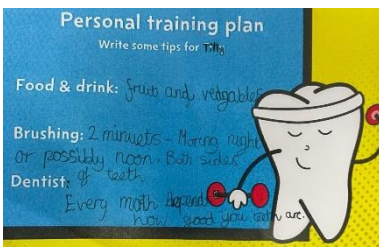 Personal training plan
Write some tips for Tilly
Food & drink: fruit and vedgables
Brushing: 2 minuets - Moring night
or possibly noon. Both sides
Dentist: of teeth
Every month depend
how good you teeth are.